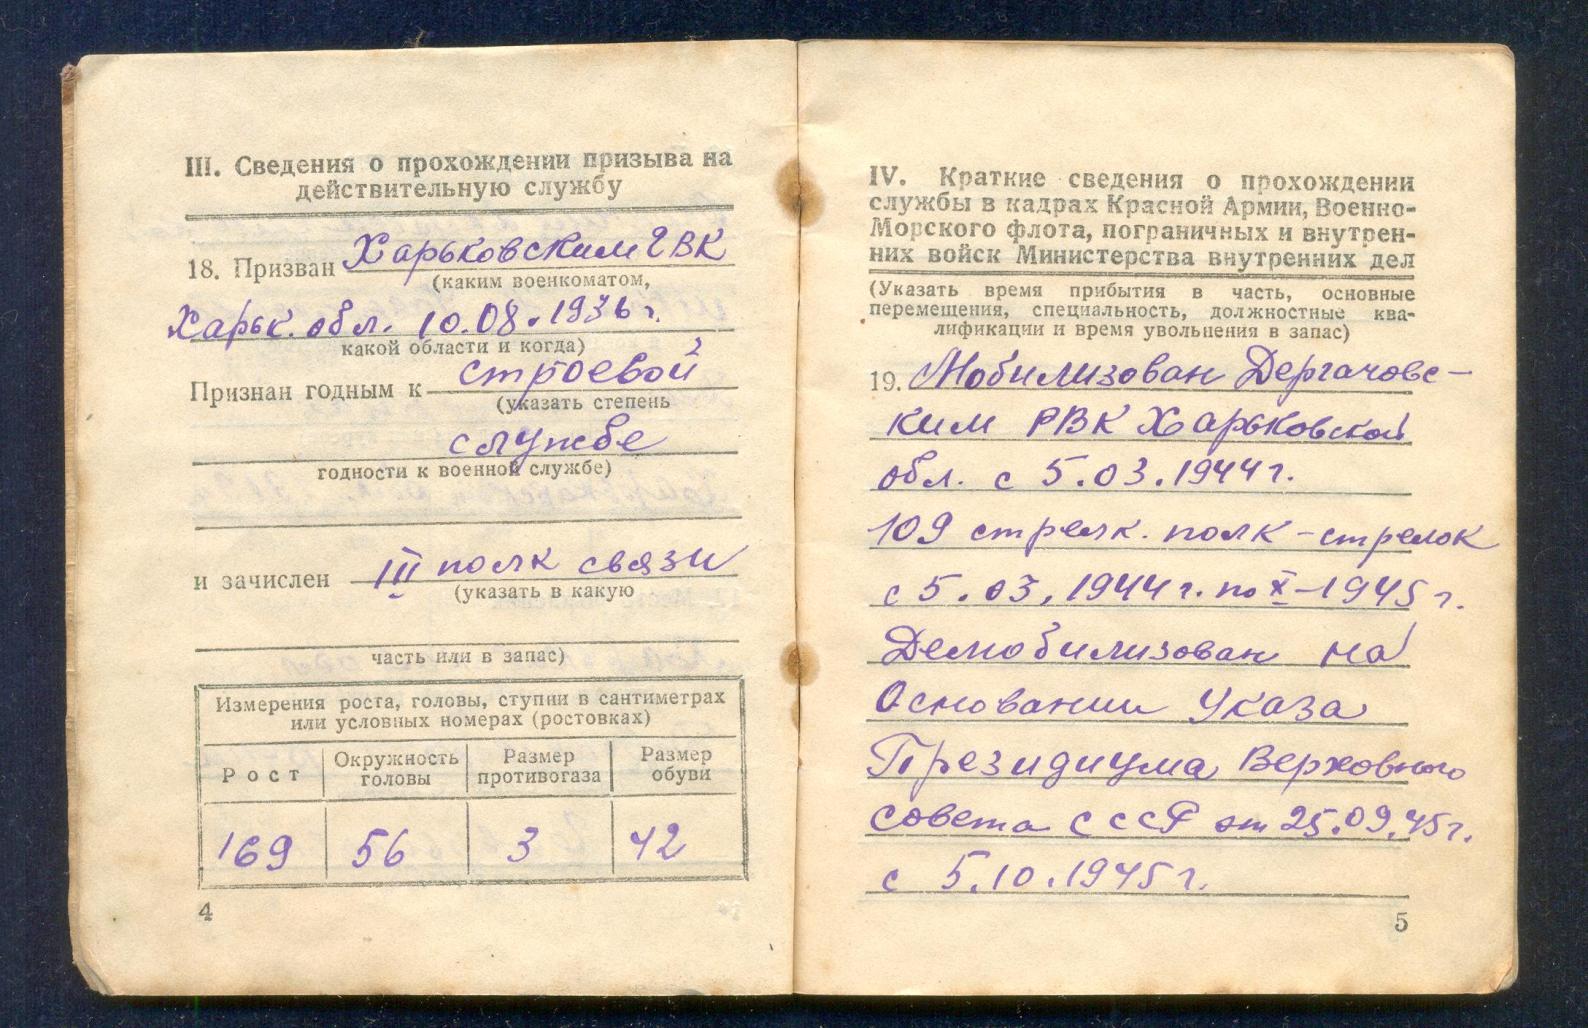 III. Сведения о прохождении призыва на
действительную службу
18. Призван Харьковским ГВК
(каким военкоматом,
Харьк. обл. 10.08.1936 г.
какой области и когда)
Признан годным к строевой
(указать степень
службе
годности к военной службе)
и зачислен III полк связи
(указать в какую
часть или в запас)
Измерения роста, головы, ступни в сантиметрах
или условных номерах (ростовках)
Рост Окружность головы Размер противогаза Размер обуви
169 56 3 42
4
IV. Краткие сведения о прохождении
службы в кадрах Красной Армии, Военно-
Морского флота, пограничных и внутрен-
них войск Министерства внутренних дел
(Указать время прибытия в часть, основные
перемещения, специальность, должностные ква-
лификации и время увольнения в запас)
19. Мобилизован Дергачовс-
ким РВК Харьковской
обл. с 5.03.1944 г.
109 стрелк. полк - стрелок
с 5.03.1944 г. по X-1945 г.
Демобилизован на
Основании Указа
Президиума Верховного
совета СССР от 25.09.45 г.
с 5.10.1945 г.
5